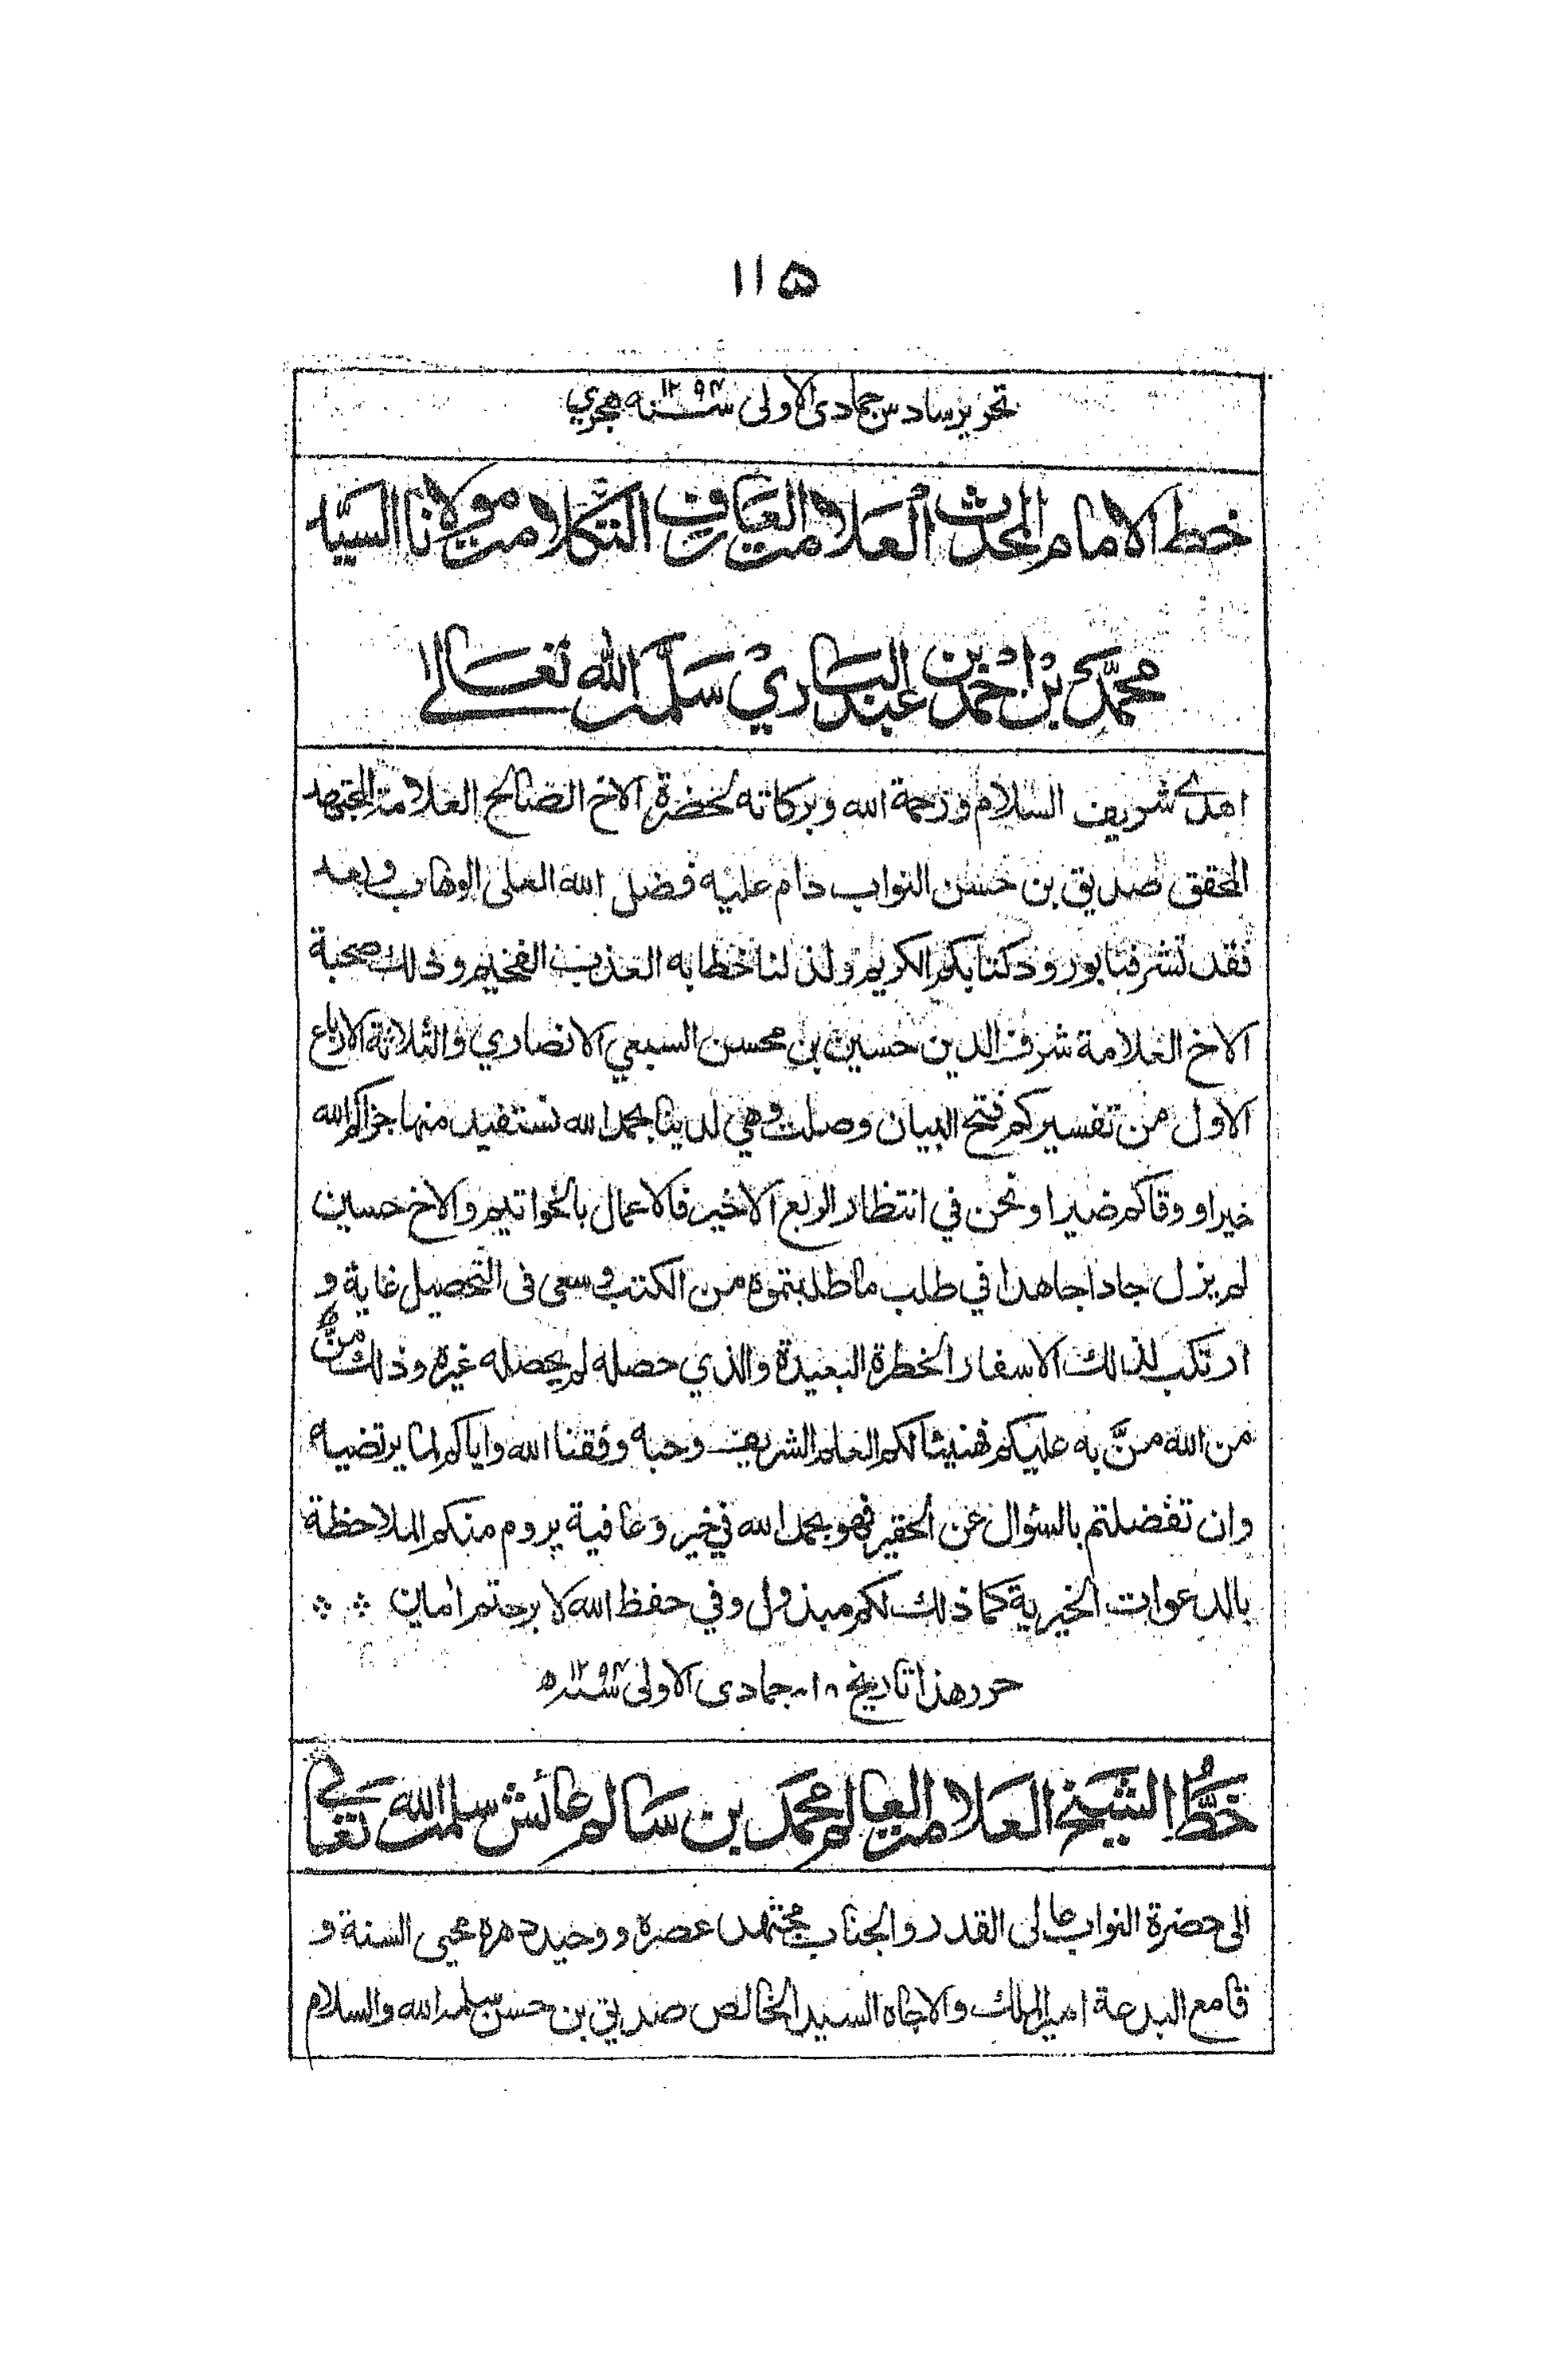 ١١۵
تحرير سادس جمادى الاولى سنه ١٢٩٤ هجري
خط الامام المحدث العلامة العارف التكلامة مولانا السيد
محمد بن احمد بن عبد الباري سلمه الله تعالى
اهدي شريف السلام ورحمة الله وبركاته لحضرة الاخ الصالح العلامة المجتهد
المحقق صديق بن حسن النواب دام عليه فضل الله العلى الوهاب وبعد
فقد تشرفنا بورود كتابكم الكريم ولذ لنا خطابه العذب الفخيم وذلك صحبة
الاخ العلامة شرف الدين حسين بن محسن السبعي الانصاري والثلاثة الارباع
الاول من تفسيركم فتح البيان وصلت وهي لدينا بحمد الله نستفيد منها جزاكم الله
خيرا ووقاكم ضيرا ونحن في انتظار الربع الاخير فالاعمال بالخواتيم والاخ حسين
لم يزل جادا جاهدا في طلب ما طلبتموه من الكتب وسعى فى التحصيل غاية و
ارتكب لذلك الاسفار الخطرة البعيدة والذي حصله لم يحصله غيره وذلك منَّ
من الله منَّ به عليكم فهنيئا لكم العلم الشريف وحبه وفقنا الله واياكم لما يرتضيه
وان تفضلتم بالسؤال عن الحقير فهو بحمد الله في خير وعافية يروم منكم الملاحظة
بالدعوات الخيرية كما ذلك لكم مبذول وفي حفظ الله لا برحتم امين
حرر هذا تاريخ ١٨ جمادى الاولى سنه ١٢٩٤ه
خطُّ الشيخ العلامة العالم محمد بن سالم عائش سلمه الله تعالى
الى حضرة النواب عالى القدر والجناب مجتهد عصره ووحيد دهره محيى السنة و
قامع البدعة امير الملك والاجاه السيد الخالص صديق بن حسن سلمه الله والسلام